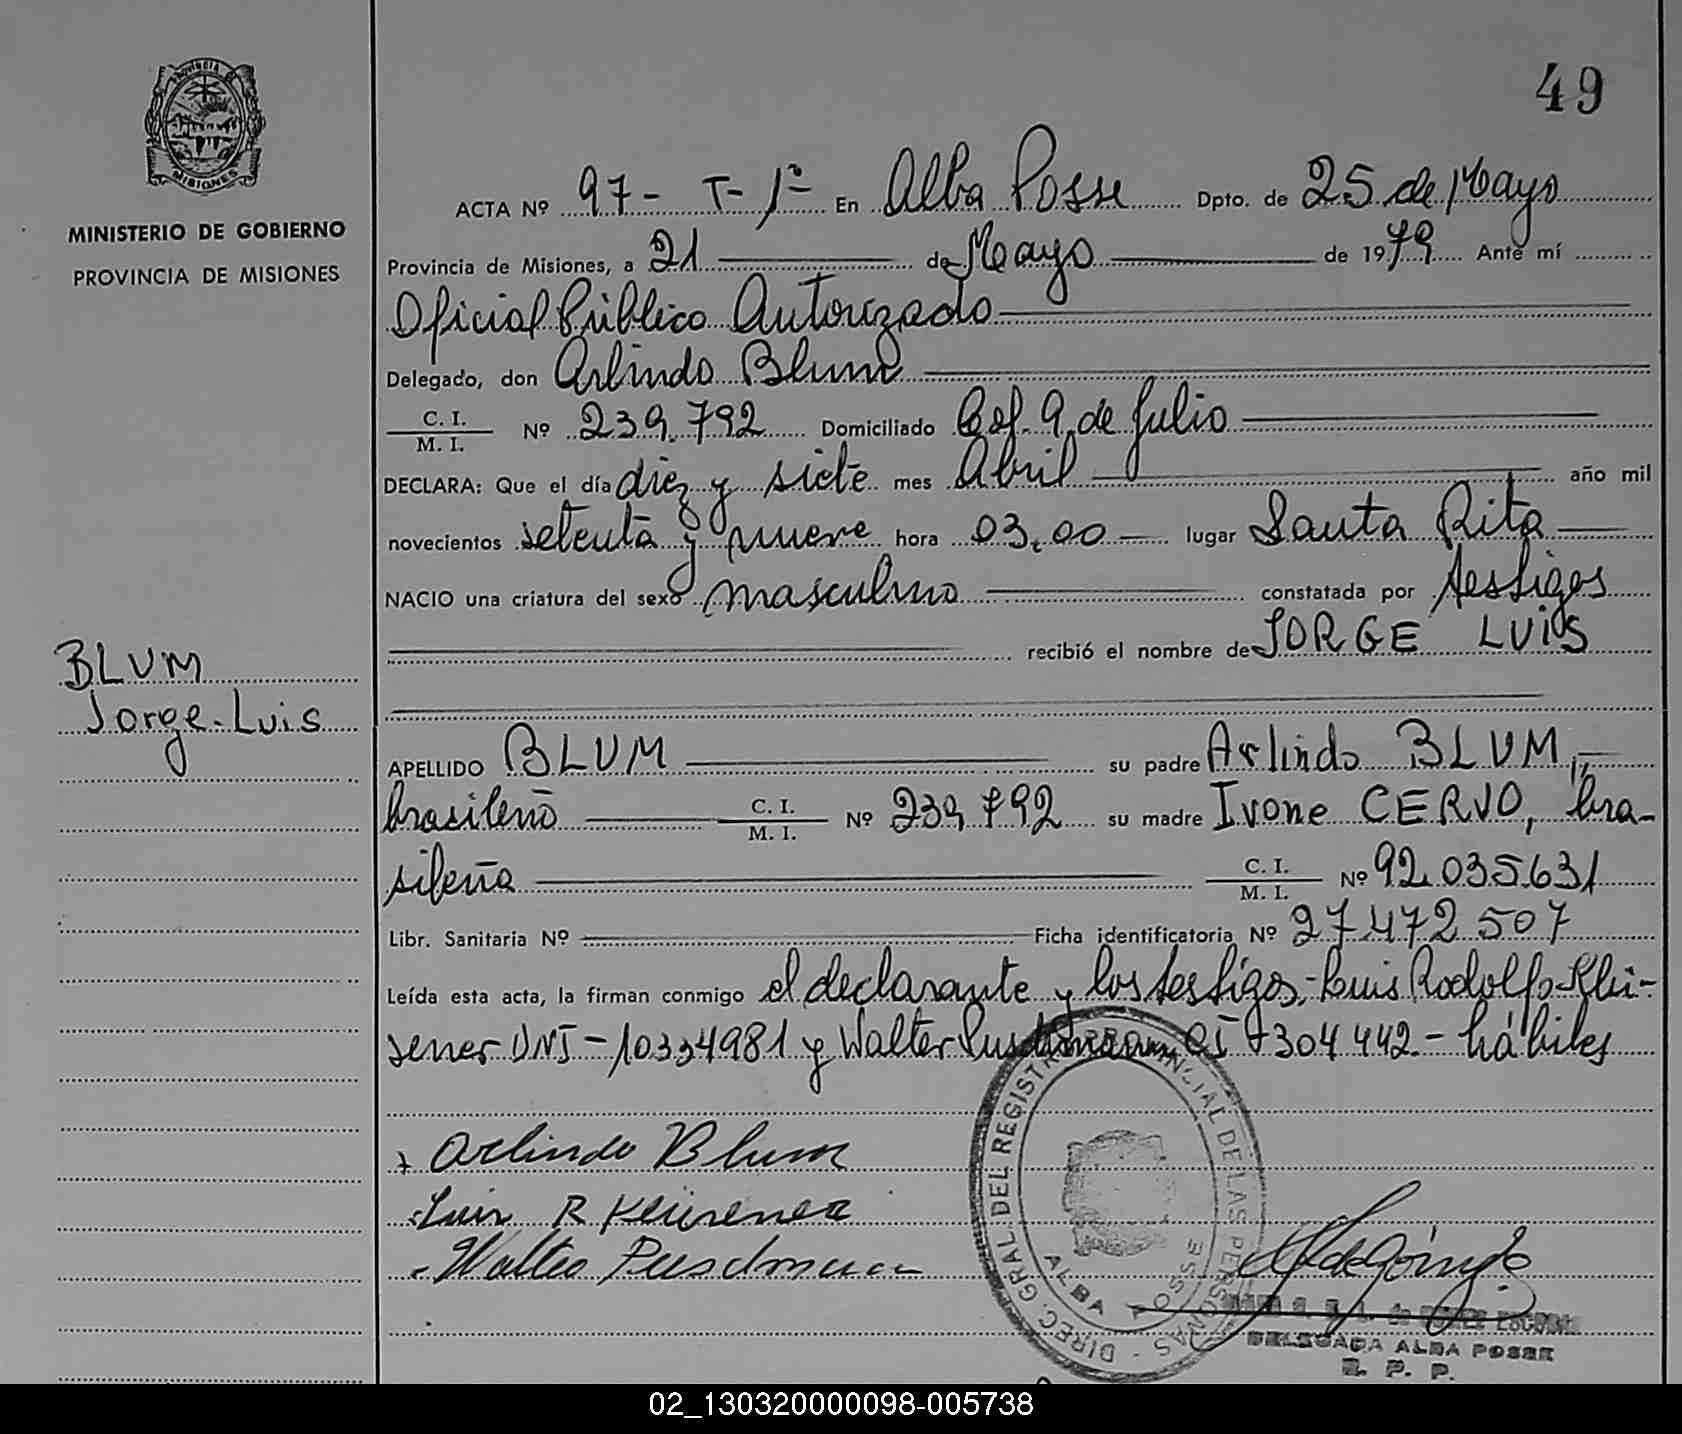 PROVINCIA DE
MISIONES
MINISTERIO DE GOBIERNO
PROVINCIA DE MISIONES
BLUM
Jorge Luis
49
ACTA Nº 97- T-1º En Alba Posse Dpto. de 25 de Mayo
Provincia de Misiones, a 21 de Mayo de 1979. Ante mí
Oficial Público Autorizado
Delegado, don Arlindo Blum
C. I.
M. I.
Nº 239.792 Domiciliado Col. 9 de Julio
DECLARA: Que el día diez y siete mes Abril año mil
novecientos setenta y nueve hora 03,00 lugar Santa Rita
NACIO una criatura del sexo masculino constatada por testigos
recibió el nombre de JORGE LUIS
APELLIDO BLUM su padre Arlindo BLUM,
brasileño C. I. M. I. Nº 239.792 su madre Ivone CERVO, bra-
sileña C. I. M. I. Nº 92.035.631
Libr. Sanitaria Nº Ficha identificatoria Nº 27.472.507
Leída esta acta, la firman conmigo el declarante y los testigos,- Luis Rodolfo Klei-
sener DNI - 10334981 y Walter CI 304 442.- hábiles
Arlindo Blum
Luis R
Walter
DIREC. GRAL. DEL REGISTRO PROVINCIAL DE LAS PERSONAS -
ALBA POSSE
DELEGADA ALBA POSSE
R. P. P.
02_130320000098-005738